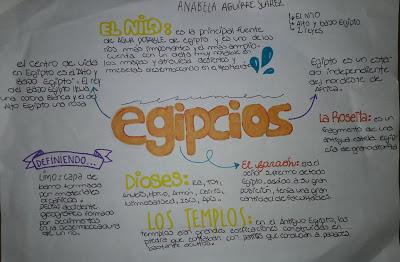 ANABELA AGUIRRE SUAREZ
EL NILO: es la principal fuente
de AGUA POTABLE de egipto y es uno de los
ríos más importantes y el más amplio.
cuenta con un delta muy grande en
los mapas y atraviesa desiertos y
mesetas desembocando en
El Nilo
Alto y Bajo Egipto
2 reyes
el centro de vida
en Egipto es el Alto y
Bajo Egipto: El rey
del Bajo Egipto lleva
una corona Blanca y el de
Alto Egipto una roja
Egipto es un esta
do independiente
del noreste de
África.
resumen
egipcios
La Roseta: es un
fragmento de una
antigua estela egip
cia de granodiorita
DEFINIENDO...
Limo: capa de
barro formada
por materiales
orgánicos.
Delta: accidente
geográfico formado
por sedimentos
en la desembocadura
de un río.
Dioses: Ra, Ton,
Anubis, Horus, Amón, Osiris,
Isis, Apis.
El faraón: era el
señor supremo de todo
Egipto, debido a su gran
posición, tenía una gran
cantidad de facultades.
LOS TEMPLOS: en el Antiguo Egipto, los
templos eran grandes edificaciones construidas en
piedra que contaban con patios que conducían a pasajes
bastante ocultos.